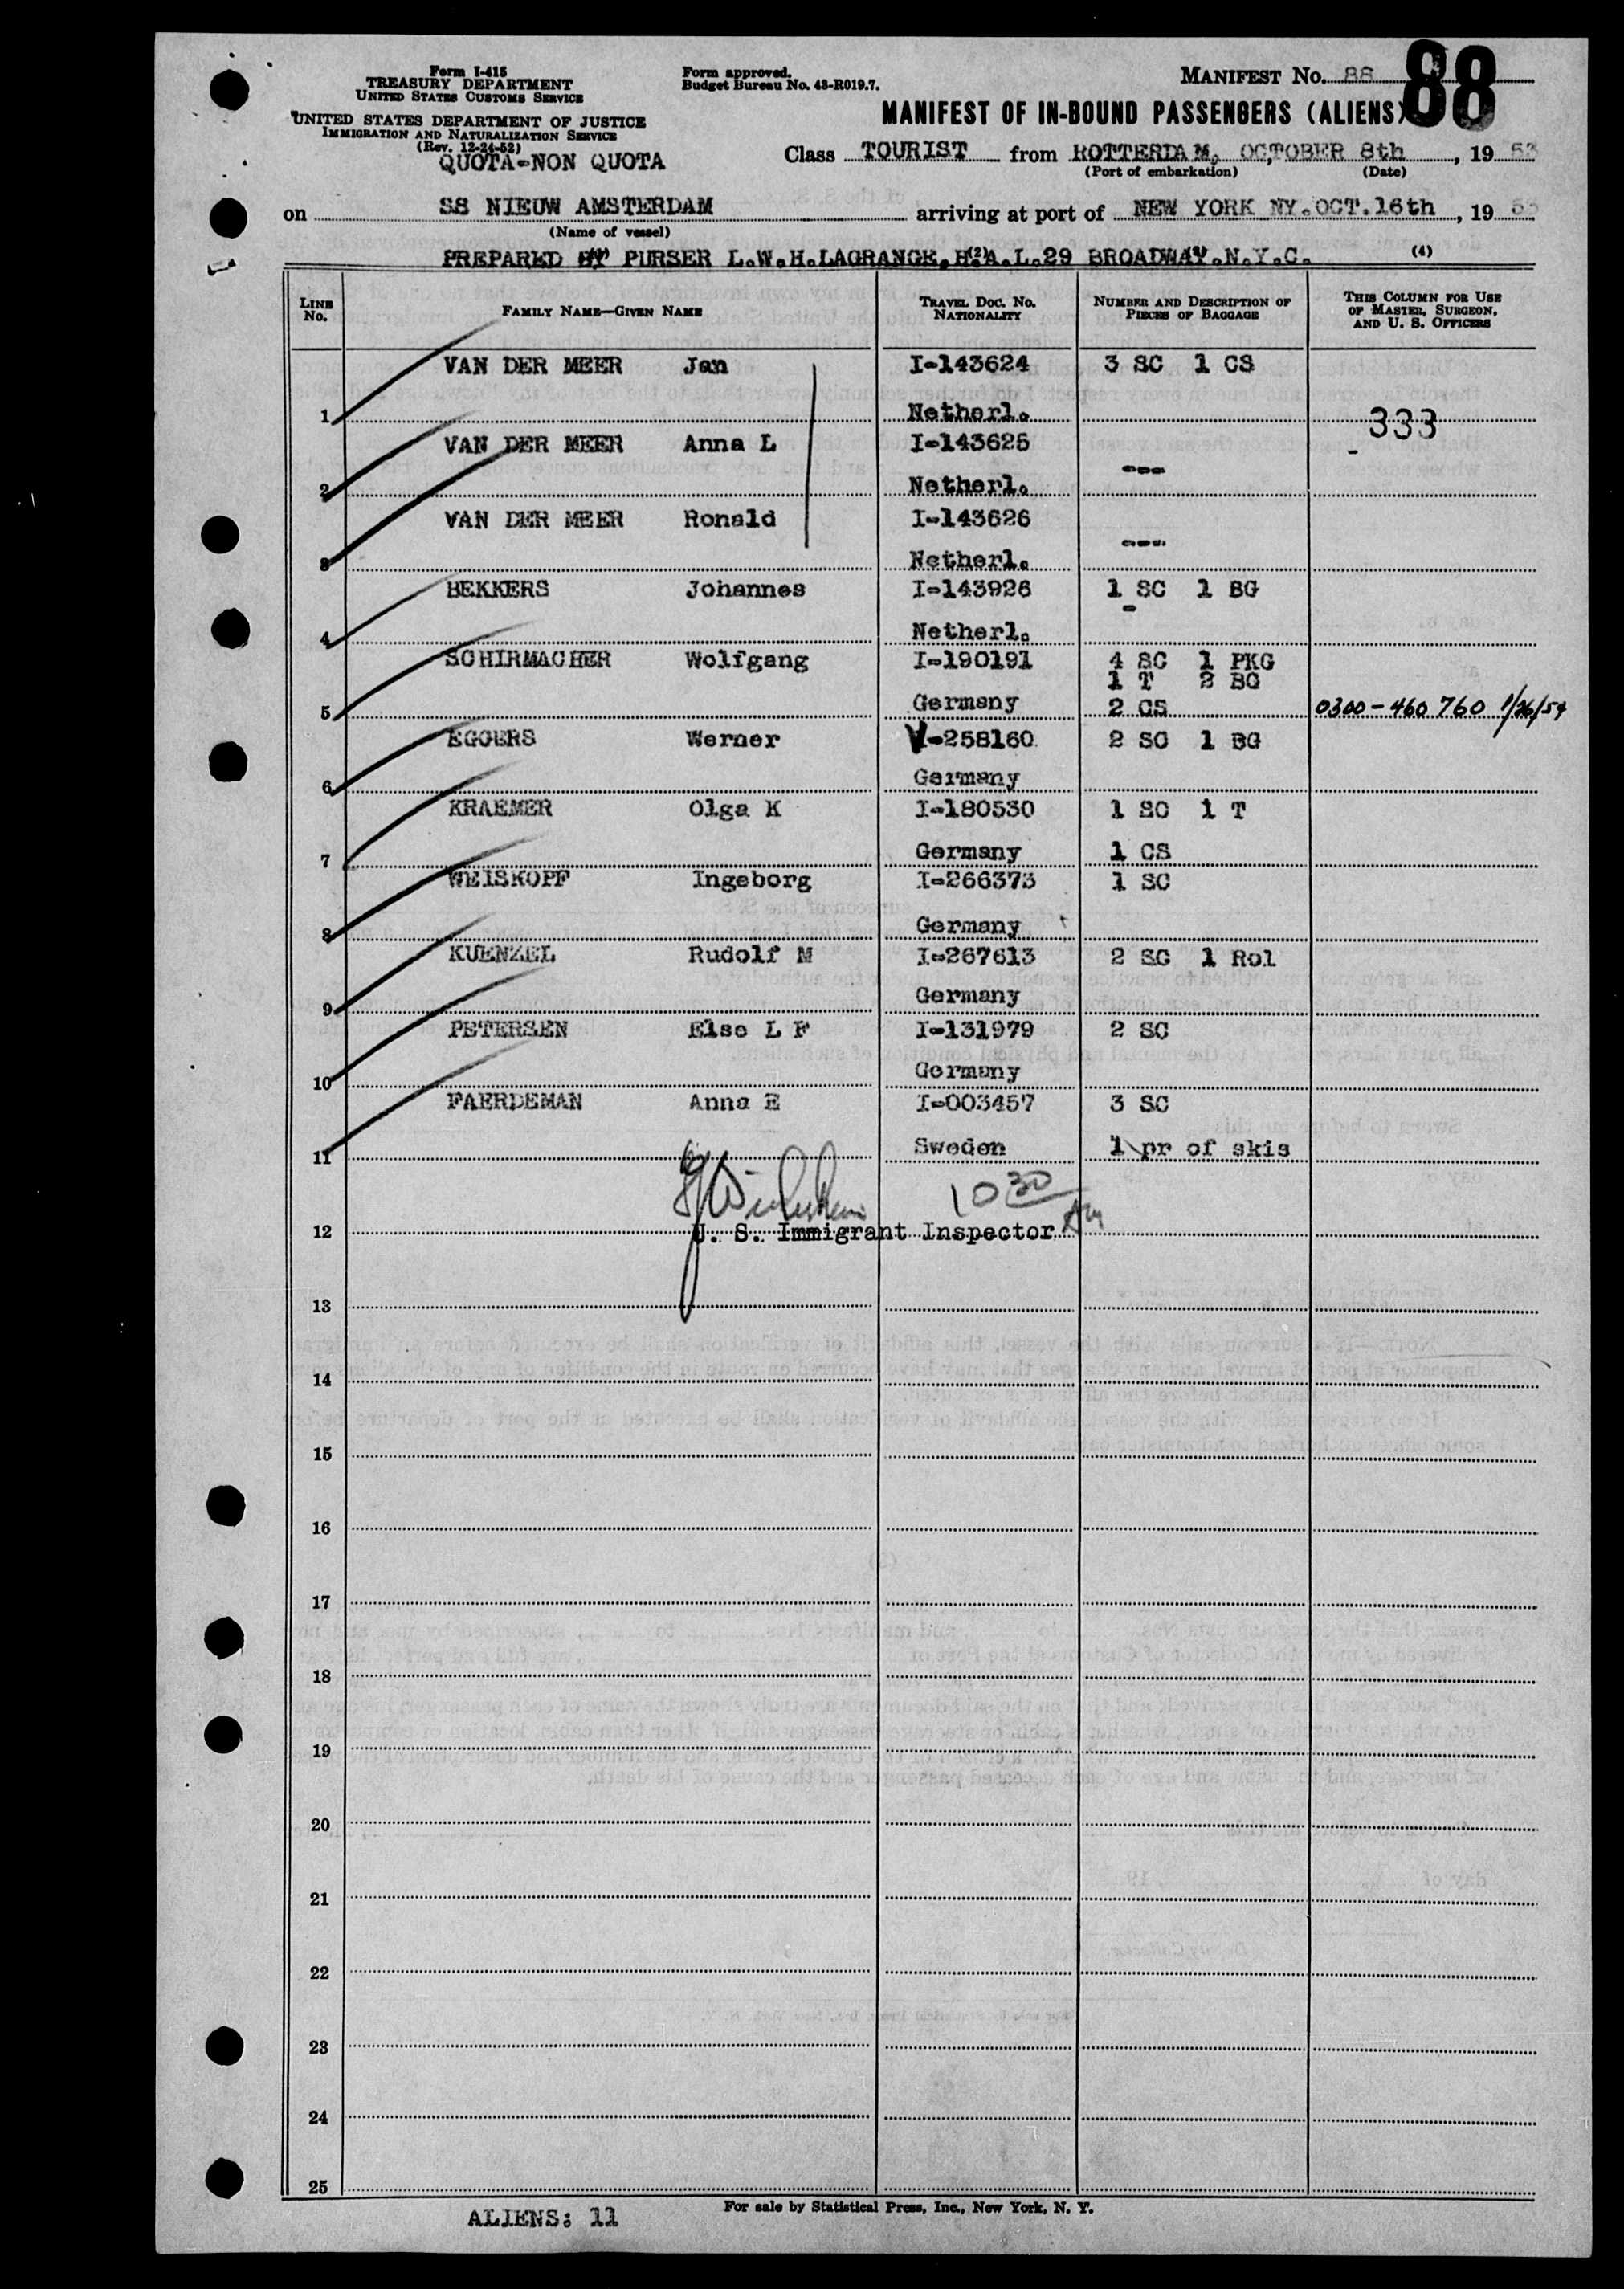 Form I-415
TREASURY DEPARTMENT
UNITED STATES CUSTOMS SERVICE
UNITED STATES DEPARTMENT OF JUSTICE
IMMIGRATION AND NATURALIZATION SERVICE
(Rev. 12-24-52)
QUOTA-NON QUOTA
Form approved.
Budget Bureau No. 43-R019.7.
MANIFEST NO. 88
88
MANIFEST OF IN-BOUND PASSENGERS (ALIENS)
Class TOURIST from ROTTERDAM, OCTOBER 8th, 19 53
(Port of embarkation) (Date)
on SS NIEUW AMSTERDAM arriving at port of NEW YORK NY.OCT.16th, 19 53
(Name of vessel)
PREPARED BY PURSER L.W.H.LAGRANGE.H.A.L.29 BROADWAY.N.Y.C.
(2) (4)
LINE NO. FAMILY NAME—GIVEN NAME TRAVEL DOC. NO. NATIONALITY NUMBER AND DESCRIPTION OF PIECES OF BAGGAGE THIS COLUMN FOR USE OF MASTER, SURGEON, AND U. S. OFFICERS
VAN DER MEER Jan I-143624 3 SC 1 CS
1 Netherl. 333
VAN DER MEER Anna L I-143625 ---
2 Netherl.
VAN DER MEER Ronald I-143626 ---
3 Netherl.
BEKKERS Johannes I-143926 1 SC 1 BG
4 Netherl.
SCHIRMACHER Wolfgang I-190191 4 SC 1 PKG
1 T 2 BG
5 Germany 2 CS 0300-460 760 1/26/54
EGGERS Werner V-258160 2 SC 1 BG
6 Germany
KRAEMER Olga K I-180530 1 SC 1 T
7 Germany 1 CS
WEISKOPF Ingeborg I-266373 1 SC
8 Germany
KUENZEL Rudolf M I-267613 2 SC 1 Rol
9 Germany
PETERSEN Else L F I-131979 2 SC
10 Germany
FAERDEMAN Anna E I-003457 3 SC
11 Sweden 1 pr of skis
10 30 AM
12 U. S. Immigrant Inspector
13
14
15
16
17
18
19
20
21
22
23
24
25
ALIENS: 11
For sale by Statistical Press, Inc., New York, N. Y.